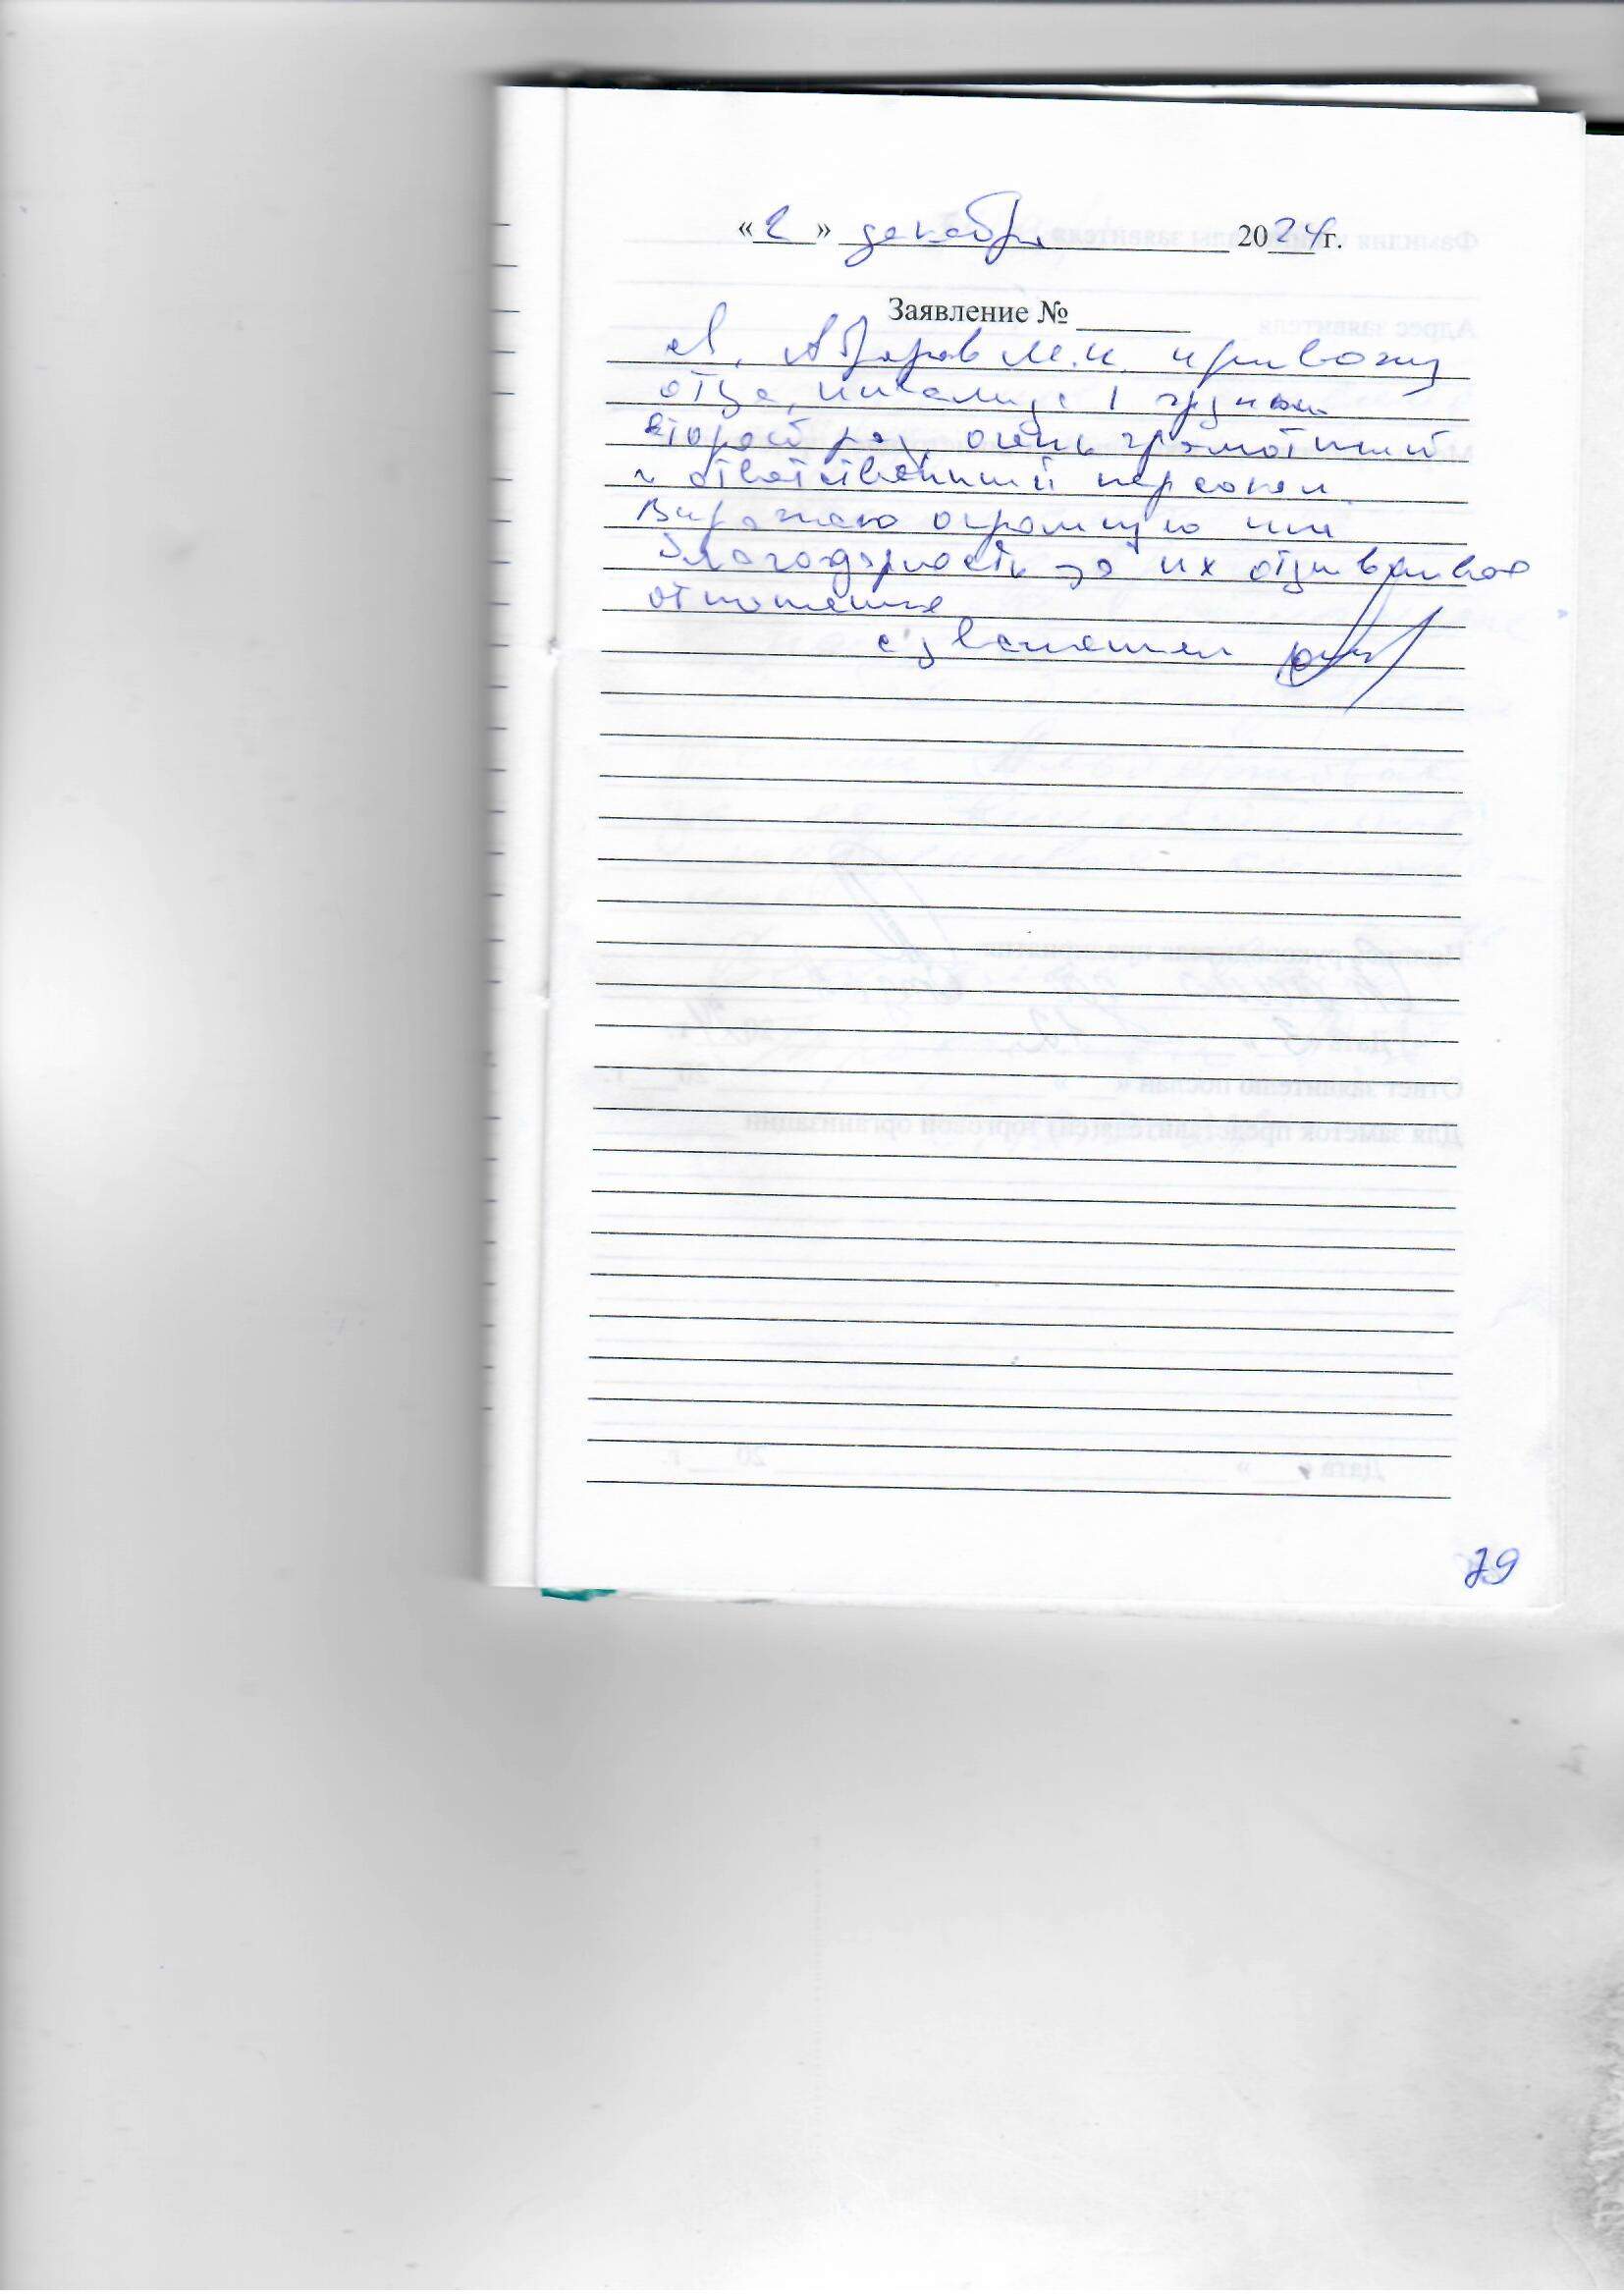 «2» декабря 2024 г.
Заявление № ____
Я, Абзаров М.И. привожу
отца, инвалида 1 группы
второй раз, очень грамотный
и ответственный персонал.
Выражаю огромную им
благодарность за их отзывчивое
отношение
с уважением
79